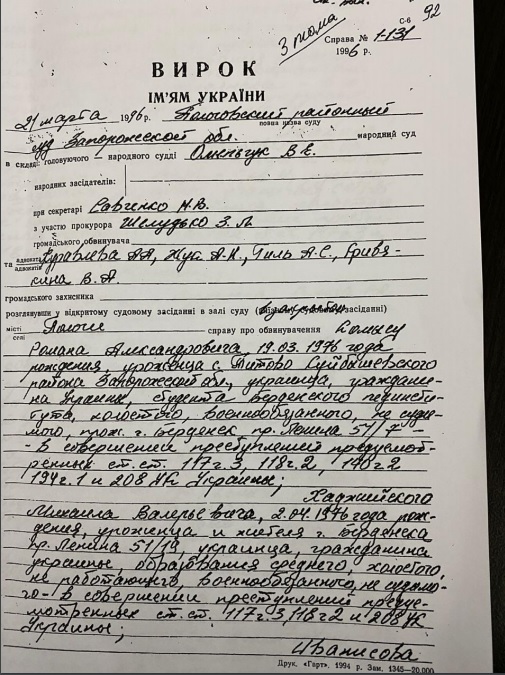 92
С-6
3 тома
Справа № 1-131
1996 р.
ВИРОК
ІМ'ЯМ УКРАЇНИ
21 марта 1996 р. Пологовский районный
повна назва суду
суд Запорожской обл. народний суд
в складі: головуючого — народного судді
народних засідателів:
при секретарі Савченко Н.В.
з участю прокурора Шелудько З.Л.
громадського обвинувача
та адвоката Журавлева А.А, Жук А.Н., Гиль А.С., Гривя-
адвокатів
кина В.А.
громадського захисника
розглянувши у відкритому судовому засіданні в залі суду засіданні)
місті Пологи справу по обвинуваченню
селі
Романа Александровича, 19.03.1976 года
рождения, уроженца с. Титово Куйбышевского
района Запорожской обл., украинца, граждани-
на Украины, студента Бердянского пединсти-
тута, холостого, военнообязанного, не суди-
мого, прож. г. Бердянск пр. Ленина 51/7 -
- В совершении преступлений предусмот-
ренных ст.ст. 117 ч.3, 118 ч.2, 190 ч.2
194 ч.1 и 208 УК Украины;
Хаджийского
Михаила Валерьевича, 2.04.1976 года рож-
дения, уроженца и жителя г. Бердянска
пр. Ленина 51/19, украинца, гражданина
украины, образования среднего, холостого,
не работающего, военнообязанного, не судимо-
го - в совершении преступлений преду-
смотренных ст.ст. 117 ч.3, 118 ч.2 и 208 УК
Украины;
Иванисова
Друк. „Гарт", 1994 р. Зам. 1345—20.000